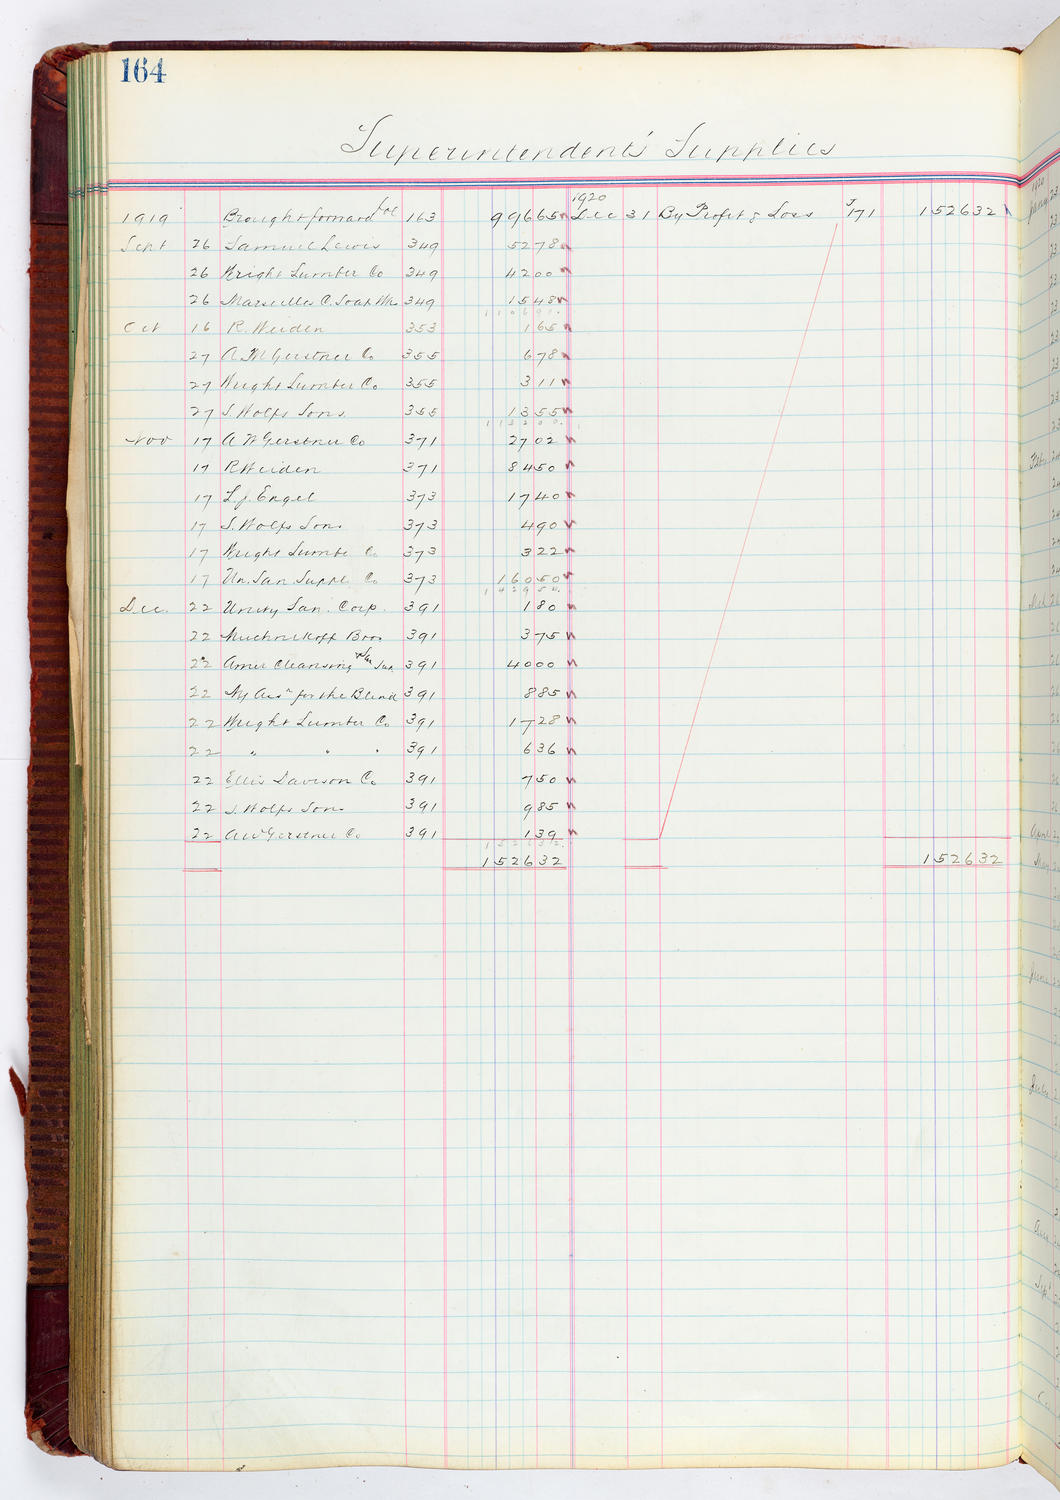 164
Superintendent's Supplies
1919 Brought forward fol 163 99665 1920 Dec 31 By Profit & Loss J171 152632
Sept 26 Samuel Lewis 349 5278
26 Wright Lumber Co 349 4200
26 Marseilles C. Soap Wks 349 1548
110691.
Oct 16 R. Heiden 353 165
27 A W Gerstner Co 355 678
27 Wright Lumber Co 355 311
27 S. Wolfs Sons 355 1355
113200.
Nov 17 A W Gerstner Co 371 2702
17 R Heiden 371 8450
17 L. J. Engel 373 1740
17 S. Wolfs Sons 373 490
17 Wright Lumbe Co 373 322
17 Un. San. Suppl. Co 373 16050
142954.
Dec. 22 Unity San. Corp. 391 180
22 Muchnikoff Bros 391 375
22 Amer Cleansing 391 4000
22 Ny Assn for the Blind 391 885
22 Wright Lumber Co 391 1728
22 " " " 391 636
22 Ellis Davison Co 391 750
22 S. Wolfs Sons 391 985
22 A W Gerstner Co 391 139
152632.
152632 152632